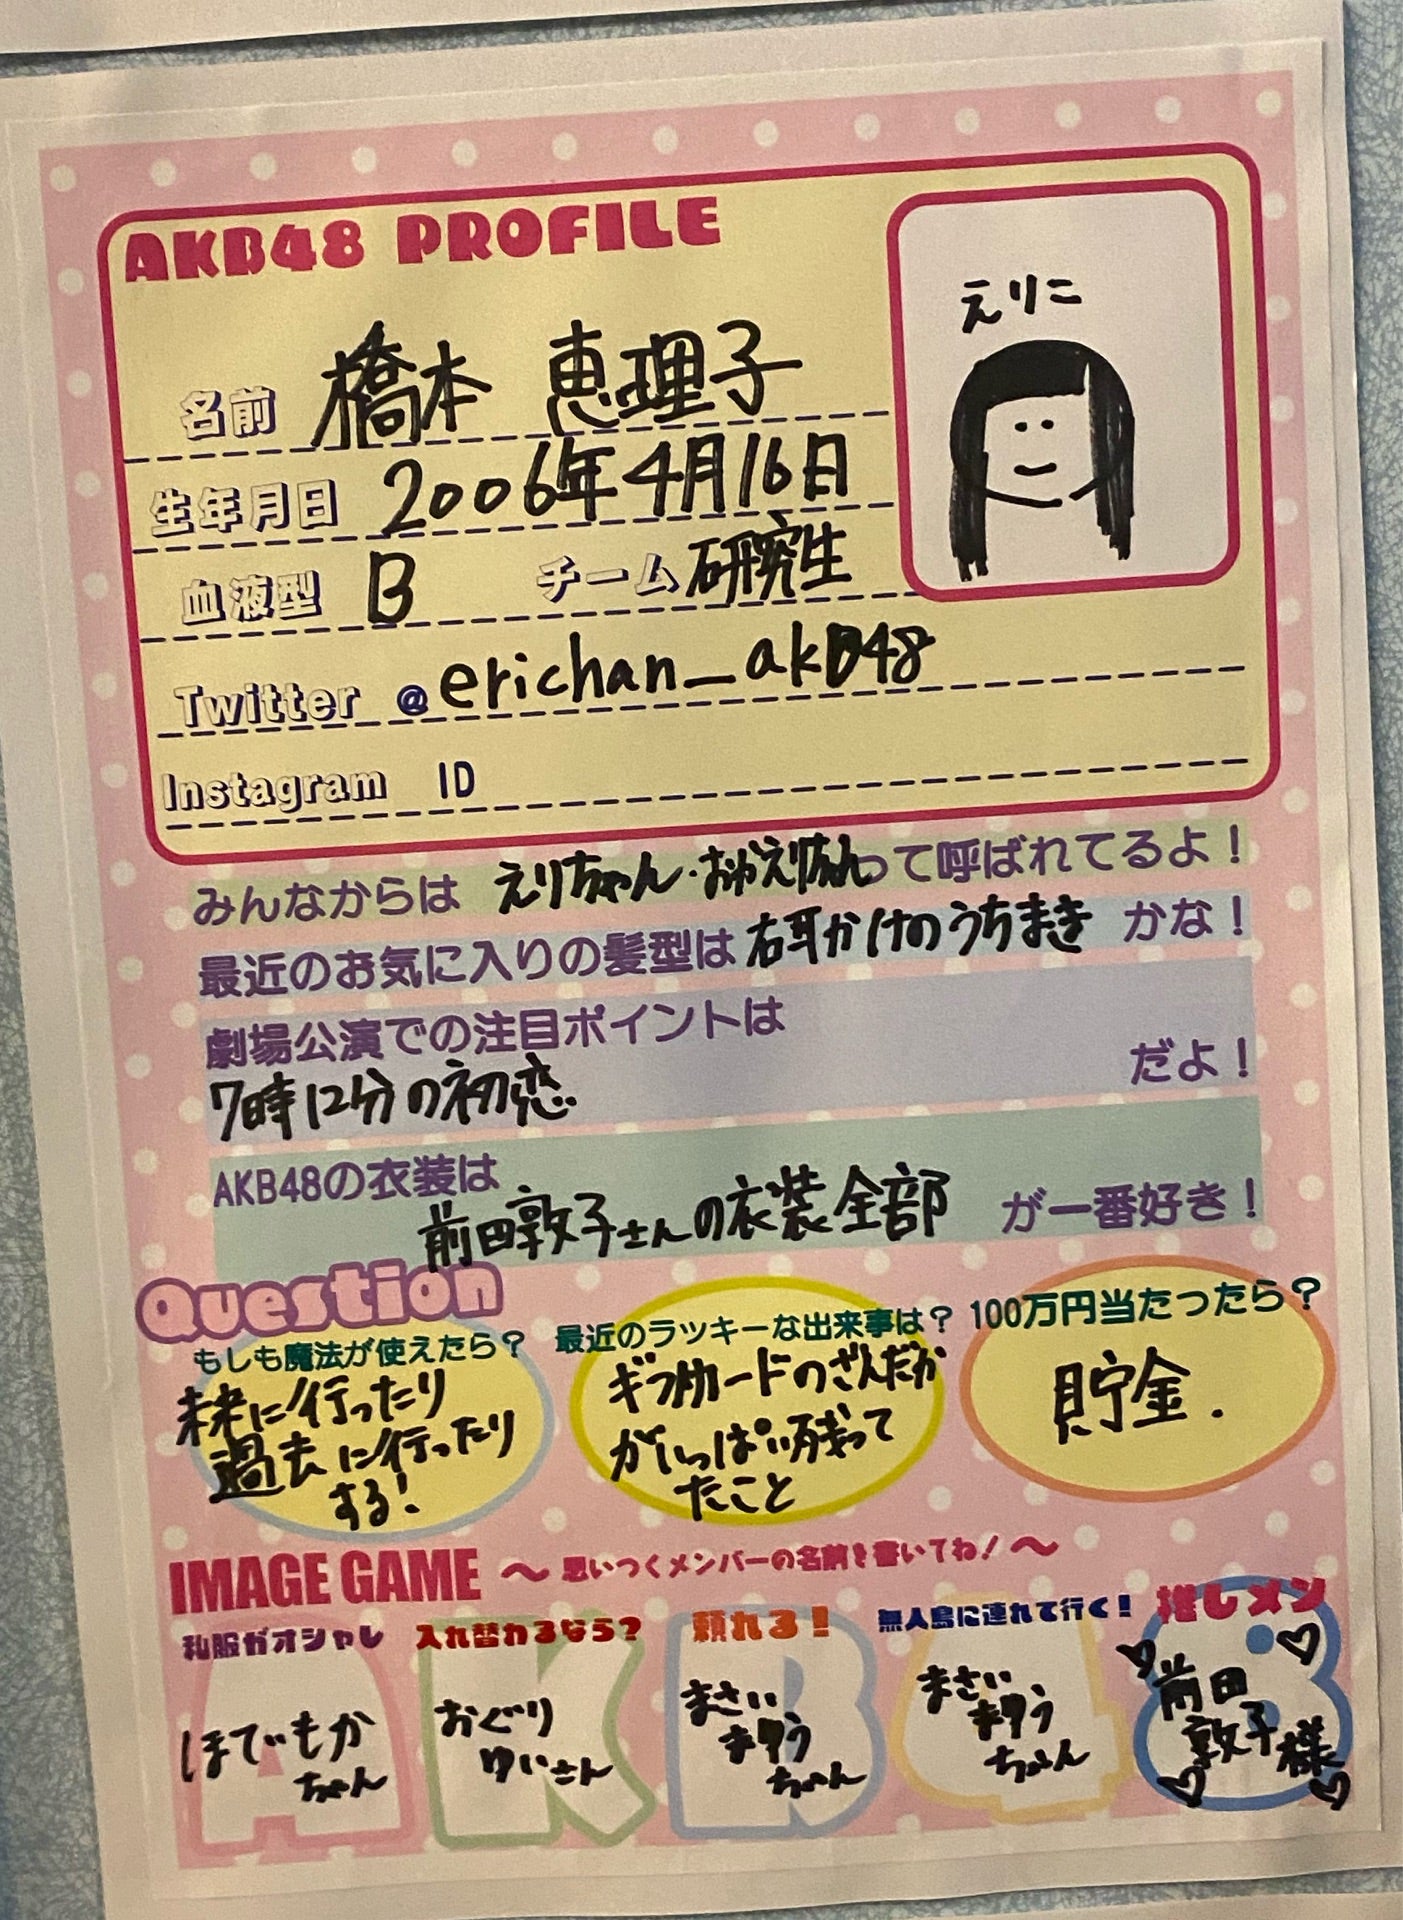 AKB48 PROFILE
えりこ
名前 橋本 恵理子
生年月日 2006年4月16日
血液型 B チーム 研究生
Twitter @erichan_akb48
Instagram ID
みんなからは えりちゃん・おかえりちゃんって呼ばれてるよ！
最近のお気に入りの髪型は 右耳かけのうちまき かな！
劇場公演での注目ポイントは
7時12分の初恋 だよ！
AKB48の衣装は
前田敦子さんの衣装全部 が一番好き！
Question
もしも魔法が使えたら？
未来に行ったり
過去に行ったり
する！
最近のラッキーな出来事は？
ギフトカードのざんだか
がいっぱい残って
たこと
100万円当たったら？
貯金.
IMAGE GAME ～思いつくメンバーの名前を書いてね！～
私服がオシャレ
ほてぃもか
ちゃん
入れ替わるなら？
おぐり
ゆいさん
頼れる！
まさい
まゆう
ちゃん
無人島に連れて行く！
まさい
まゆう
ちゃん
推しメン
前田
敦子様